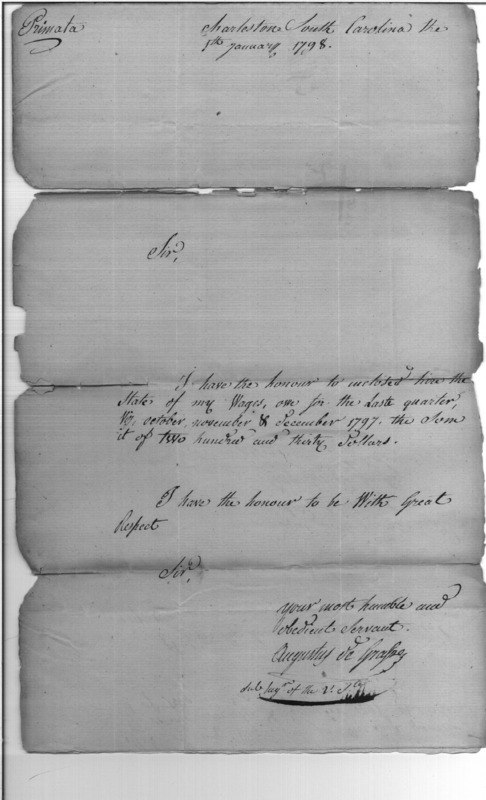 Primata
Charleston South Carolina the
1th january 1798.
Sir,
I have the honour to inclosed here the
State of my Wages, owe for the Last quarter,
Vz, october, november & december 1797. the Som
it of two hundred and thirty Dollars.
I have the honour to be With Great
Respect
Sir,
your most humble and
obedient Servant.
Augustus De Grasse
of the U. S.